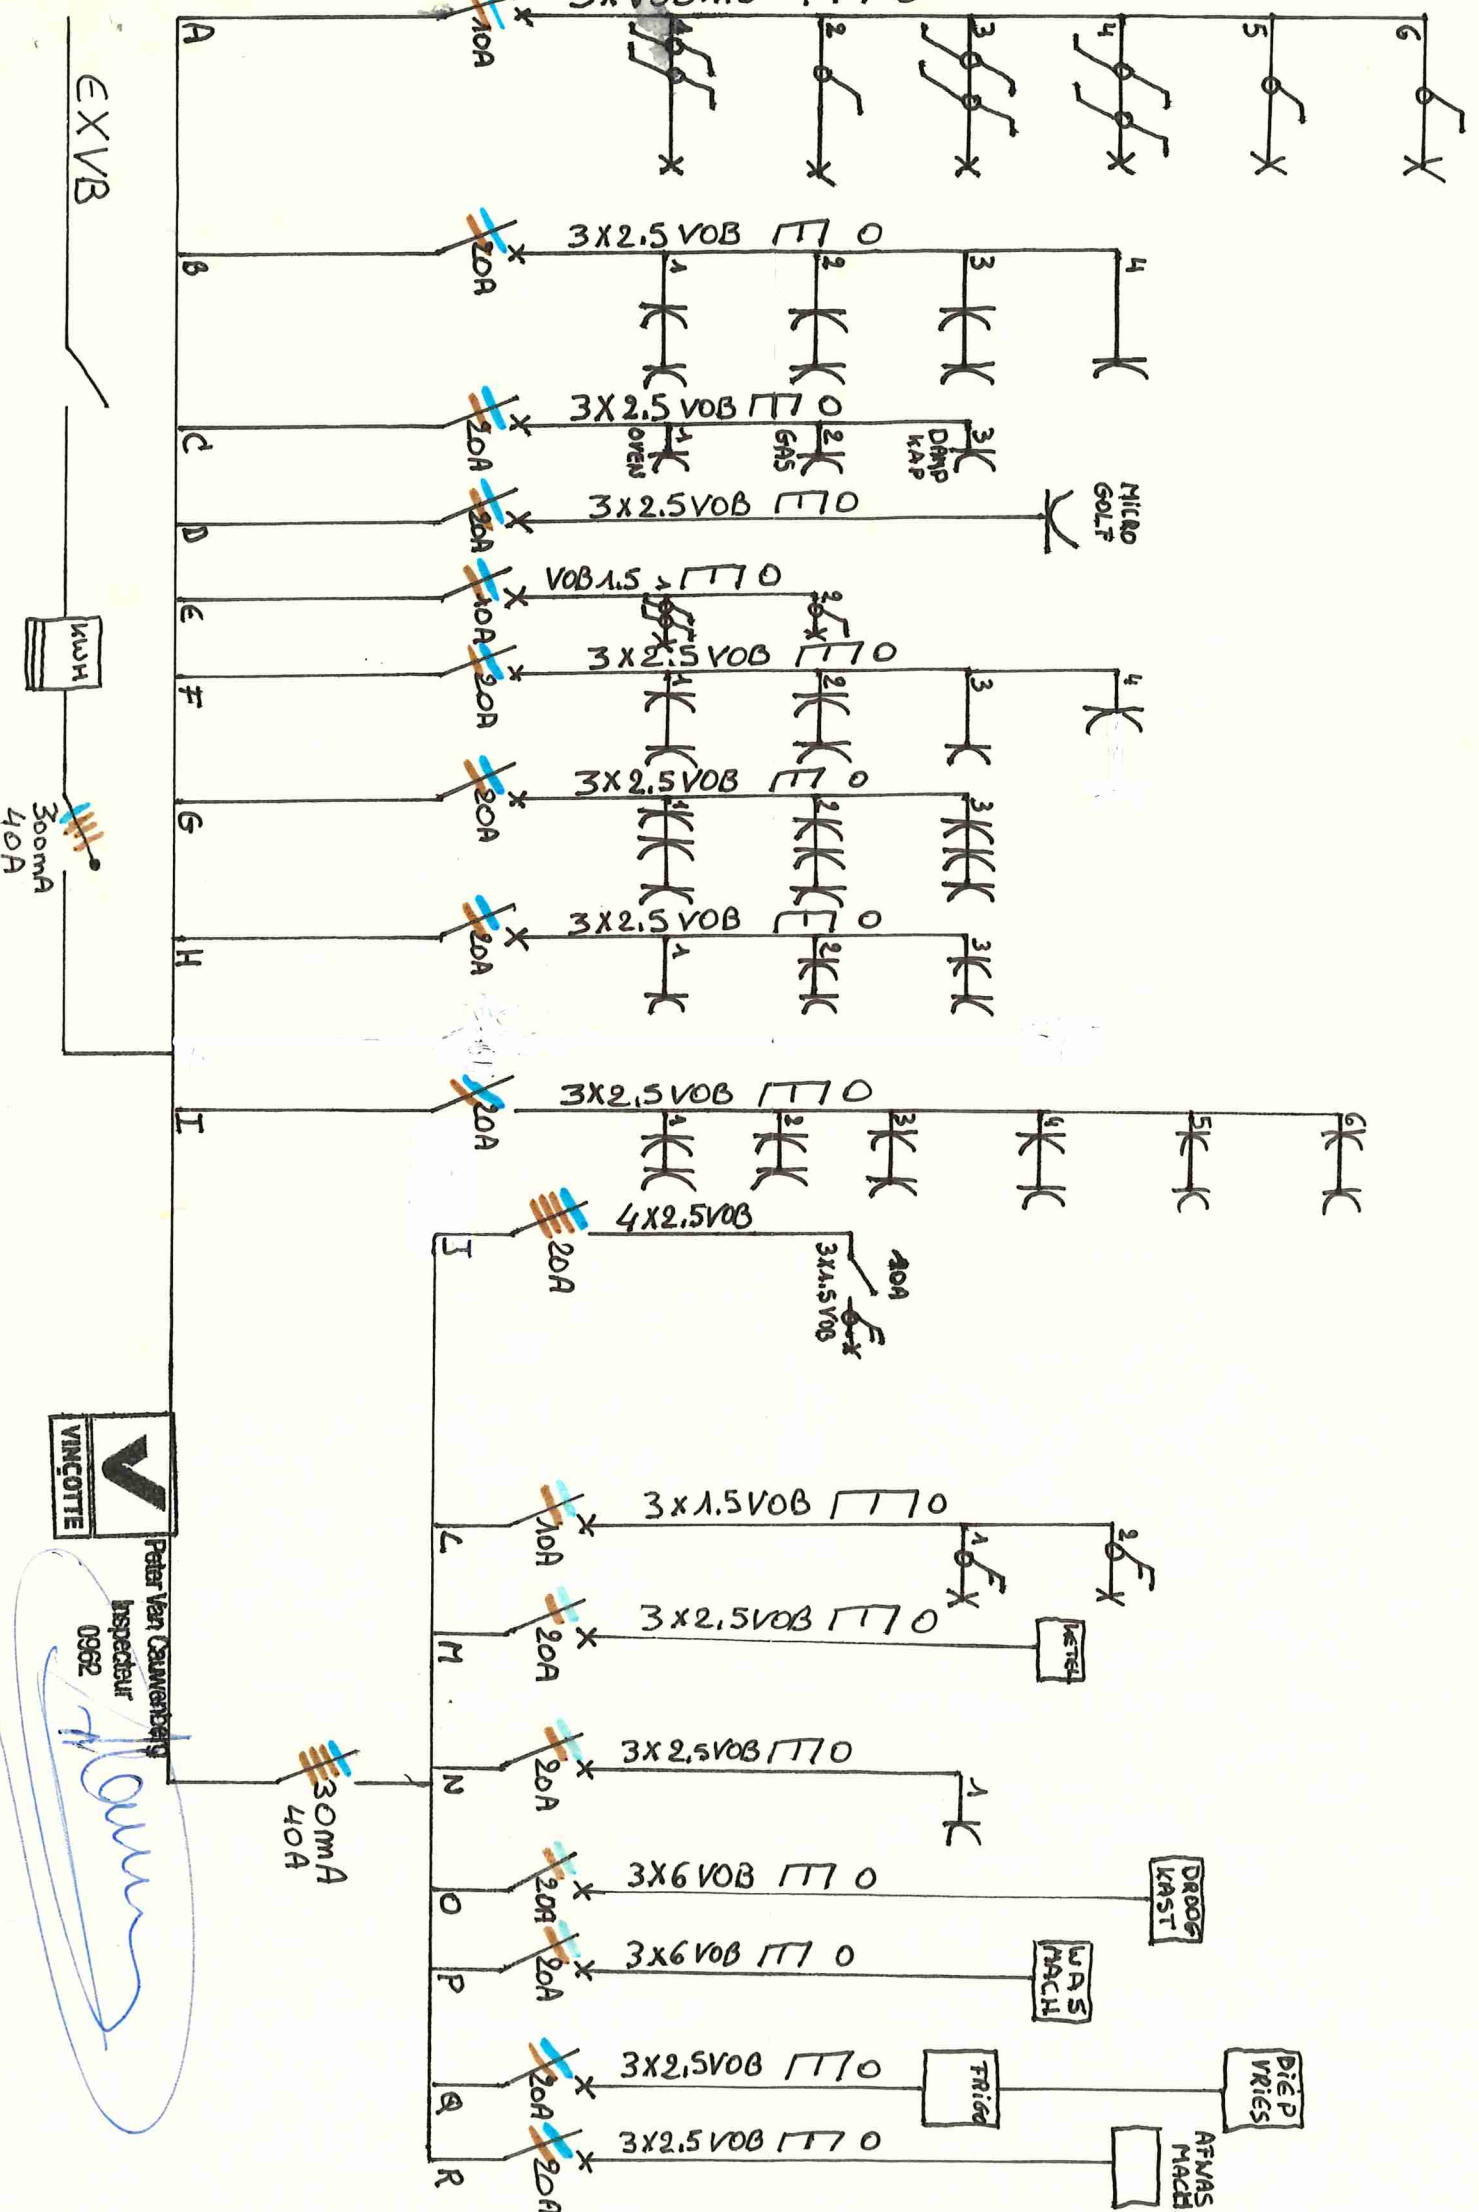 A
10A
1
2
3
4
5
6
B
20A
3X2.5 VOB
0
1
2
3
4
C
20A
3X2.5 VOB
0
1
OVEN
2
GAS
3
DAMP
KAP
D
20A
3X2.5VOB
0
MICRO
GOLF
E
10A
VOB1.5
0
1
2
F
20A
3X2.5VOB
0
1
2
3
4
G
20A
3X2.5VOB
0
1
2
3
H
20A
3X2.5 VOB
0
1
2
3
I
20A
3X2.5VOB
0
1
2
3
4
5
6
J
20A
4X2.5VOB
20A
3X1.5VOB
L
10A
3X1.5VOB
0
1
2
M
20A
3X2.5VOB
0
KETEL
N
20A
3X2.5VOB
0
1
O
20A
3X6 VOB
0
DROOG
KAST
P
20A
3X6 VOB
0
WAS
MACH
Q
20A
3X2.5VOB
0
FRIGO
DIEP
VRIES
R
20A
3X2.5VOB
0
AFWAS
MACH
EXVB
KWH
300mA
40A
30mA
40A
VINÇOTTE
Peter Van Cauwenberg
Inspecteur
0962